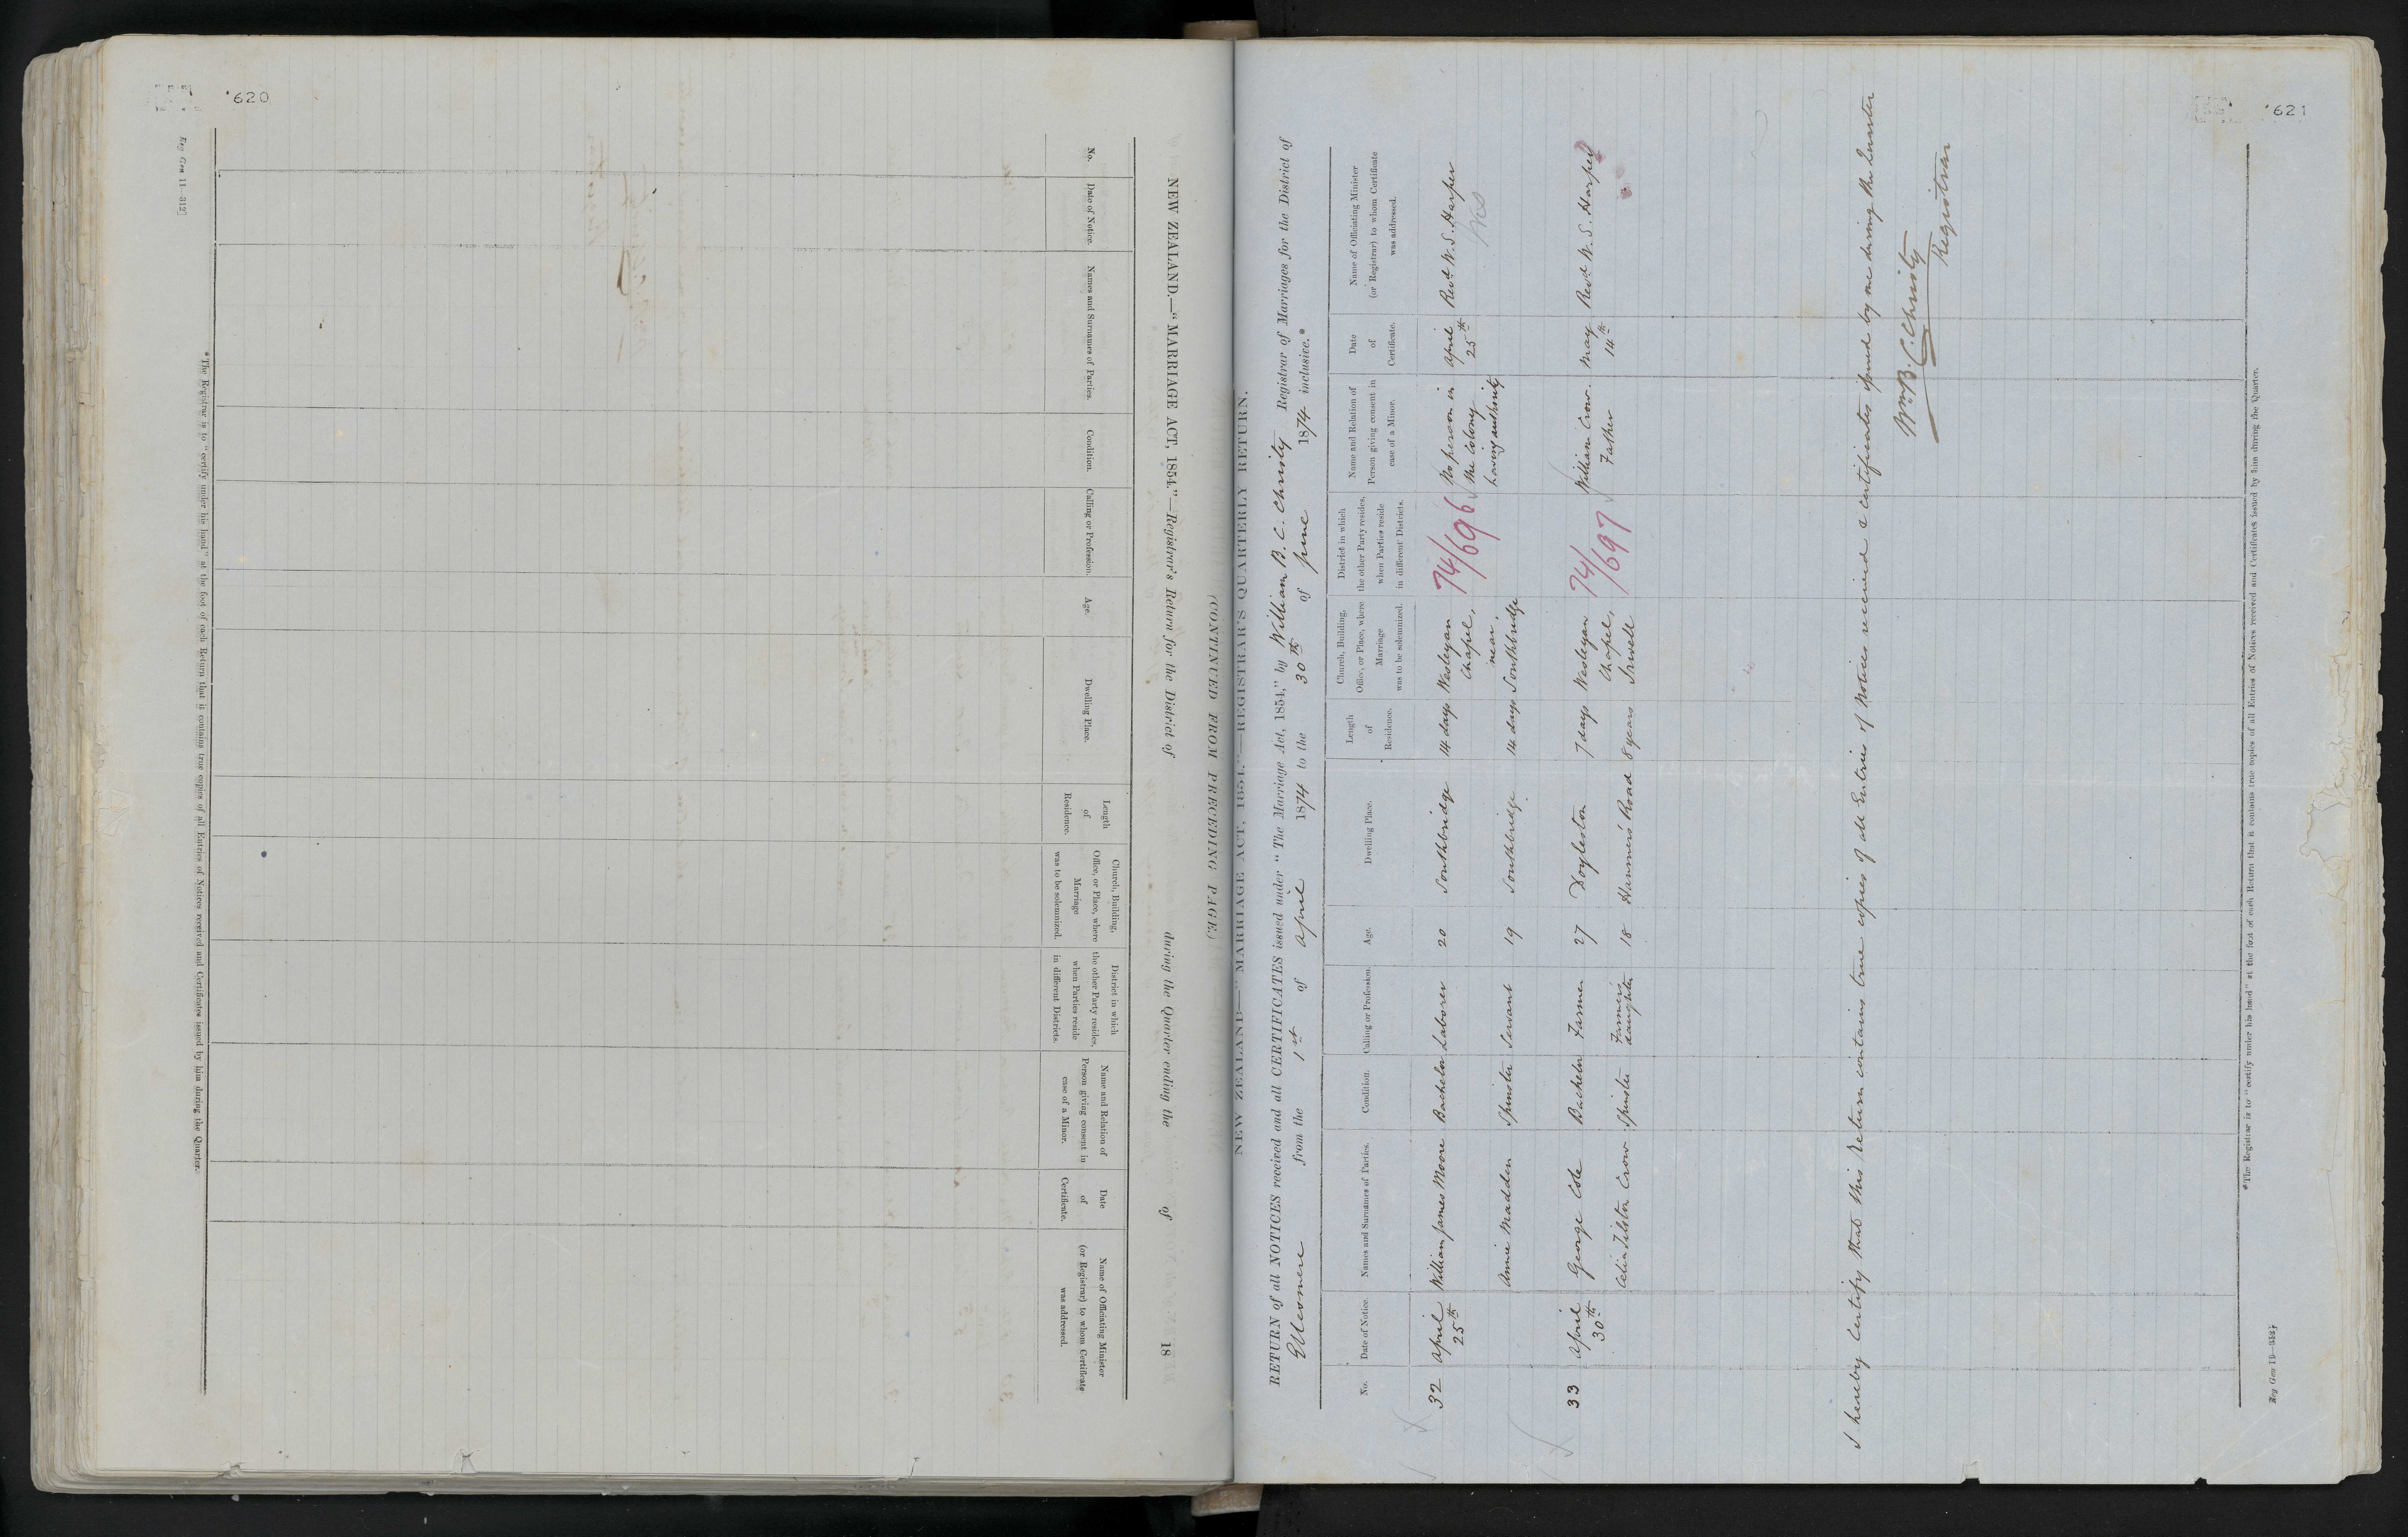 620
Reg Gen 11—312]
NEW ZEALAND.—"MARRIAGE ACT, 1854."—Registrar's Return for the District of during the Quarter ending the of 18
(CONTINUED FROM PRECEDING PAGE.)
No.
Date of Notice.
Names and Surnames of Parties.
Condition.
Calling or Profession.
Age.
Dwelling Place.
Length
of
Residence.
Church, Building,
Office, or Place, where
Marriage
was to be solemnized.
District in which
the other Party resides,
when Parties reside
in different Districts.
Name and Relation of
Person giving consent in
case of a Minor.
Date
of
Certificate.
Name of Officiating Minister
(or Registrar) to whom Certificate
was addressed.
*The Registrar is to "certify under his hand" at the foot of each Return that it contains true copies of all Entries of Notices received and Certificates issued by him during the Quarter.
621
NEW ZEALAND—"MARRIAGE ACT, 1854."—REGISTRAR'S QUARTERLY RETURN.
RETURN of all NOTICES received and all CERTIFICATES issued under "The Marriage Act, 1854," by William B. C. Christy Registrar of Marriages for the District of
Ellesmere from the 1st of April 1874 to the 30th of June 1874 inclusive.*
No.
Date of Notice
Names and Surnames of Parties.
Condition.
Calling or Profession.
Age.
Dwelling Place.
Length
of
Residence.
Church, Building,
Office, or Place, where
Marriage
was to be solemnized.
District in which
the other Party resides,
when Parties reside
in different Districts.
Name and Relation of
Person giving consent in
case of a Minor.
Date
of
Certificate.
Name of Officiating Minister
(or Registrar) to whom Certificate
was addressed.
32 April William James Moore Bachelor Laborer 20 Southbridge 14 days Wesleyan 74/696 No person in April Revd W. S. Harper
25th Chapel, the Colony 25th
near, having authority
Annie Madden Spinster Servant 19 Southbridge 14 days Southbridge
33 April George Cole Bachelor Farmer 27 Doyleston 7 days Wesleyan 74/697 William Crow. May Revd W. S. Harper
30th Chapel, Father 14th
Celia Tilston Crow Spinster Farmer's daughter 18 Hanmer's Road 8 years Irwell
I hereby Certify that this Return contains true copies of all Entries of Notices received & certificates issued by me during the Quarter
Wm B. C. Christy
Registrar
*The Registrar is to "certify under his hand" at the foot of each Return that it contains true copies of all Entries of Notices received and Certificates issued by him during the Quarter.